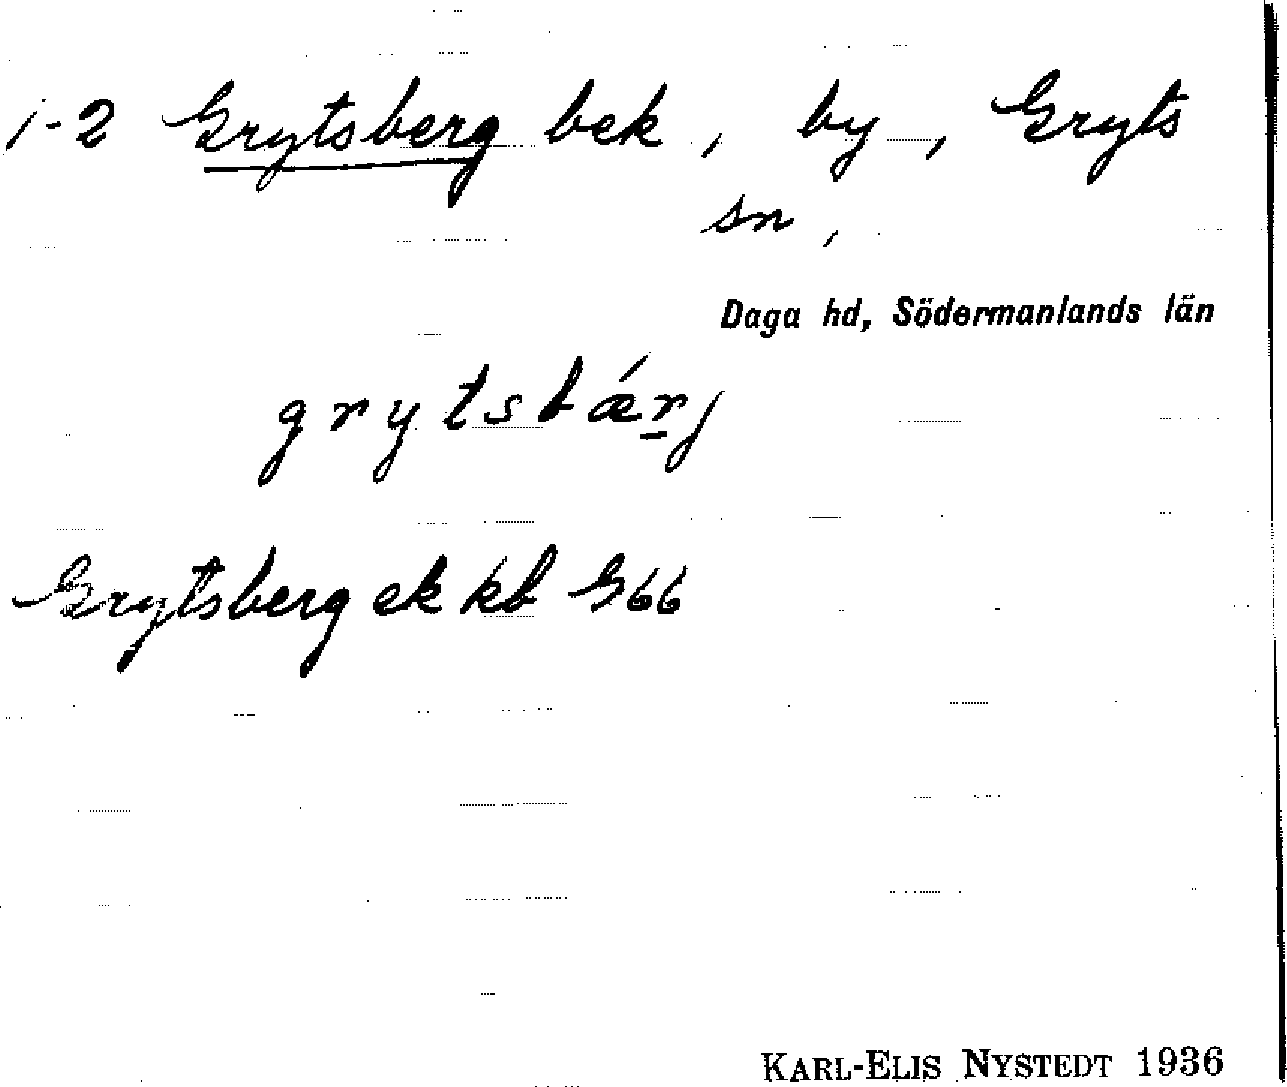 1-2 Grytsberg bek, by, Gryts
sn,
Daga hd, Södermanlands län
grytsbǽr̲j
Grytsberg ek kb G66
KARL-ELIS NYSTEDT 1936